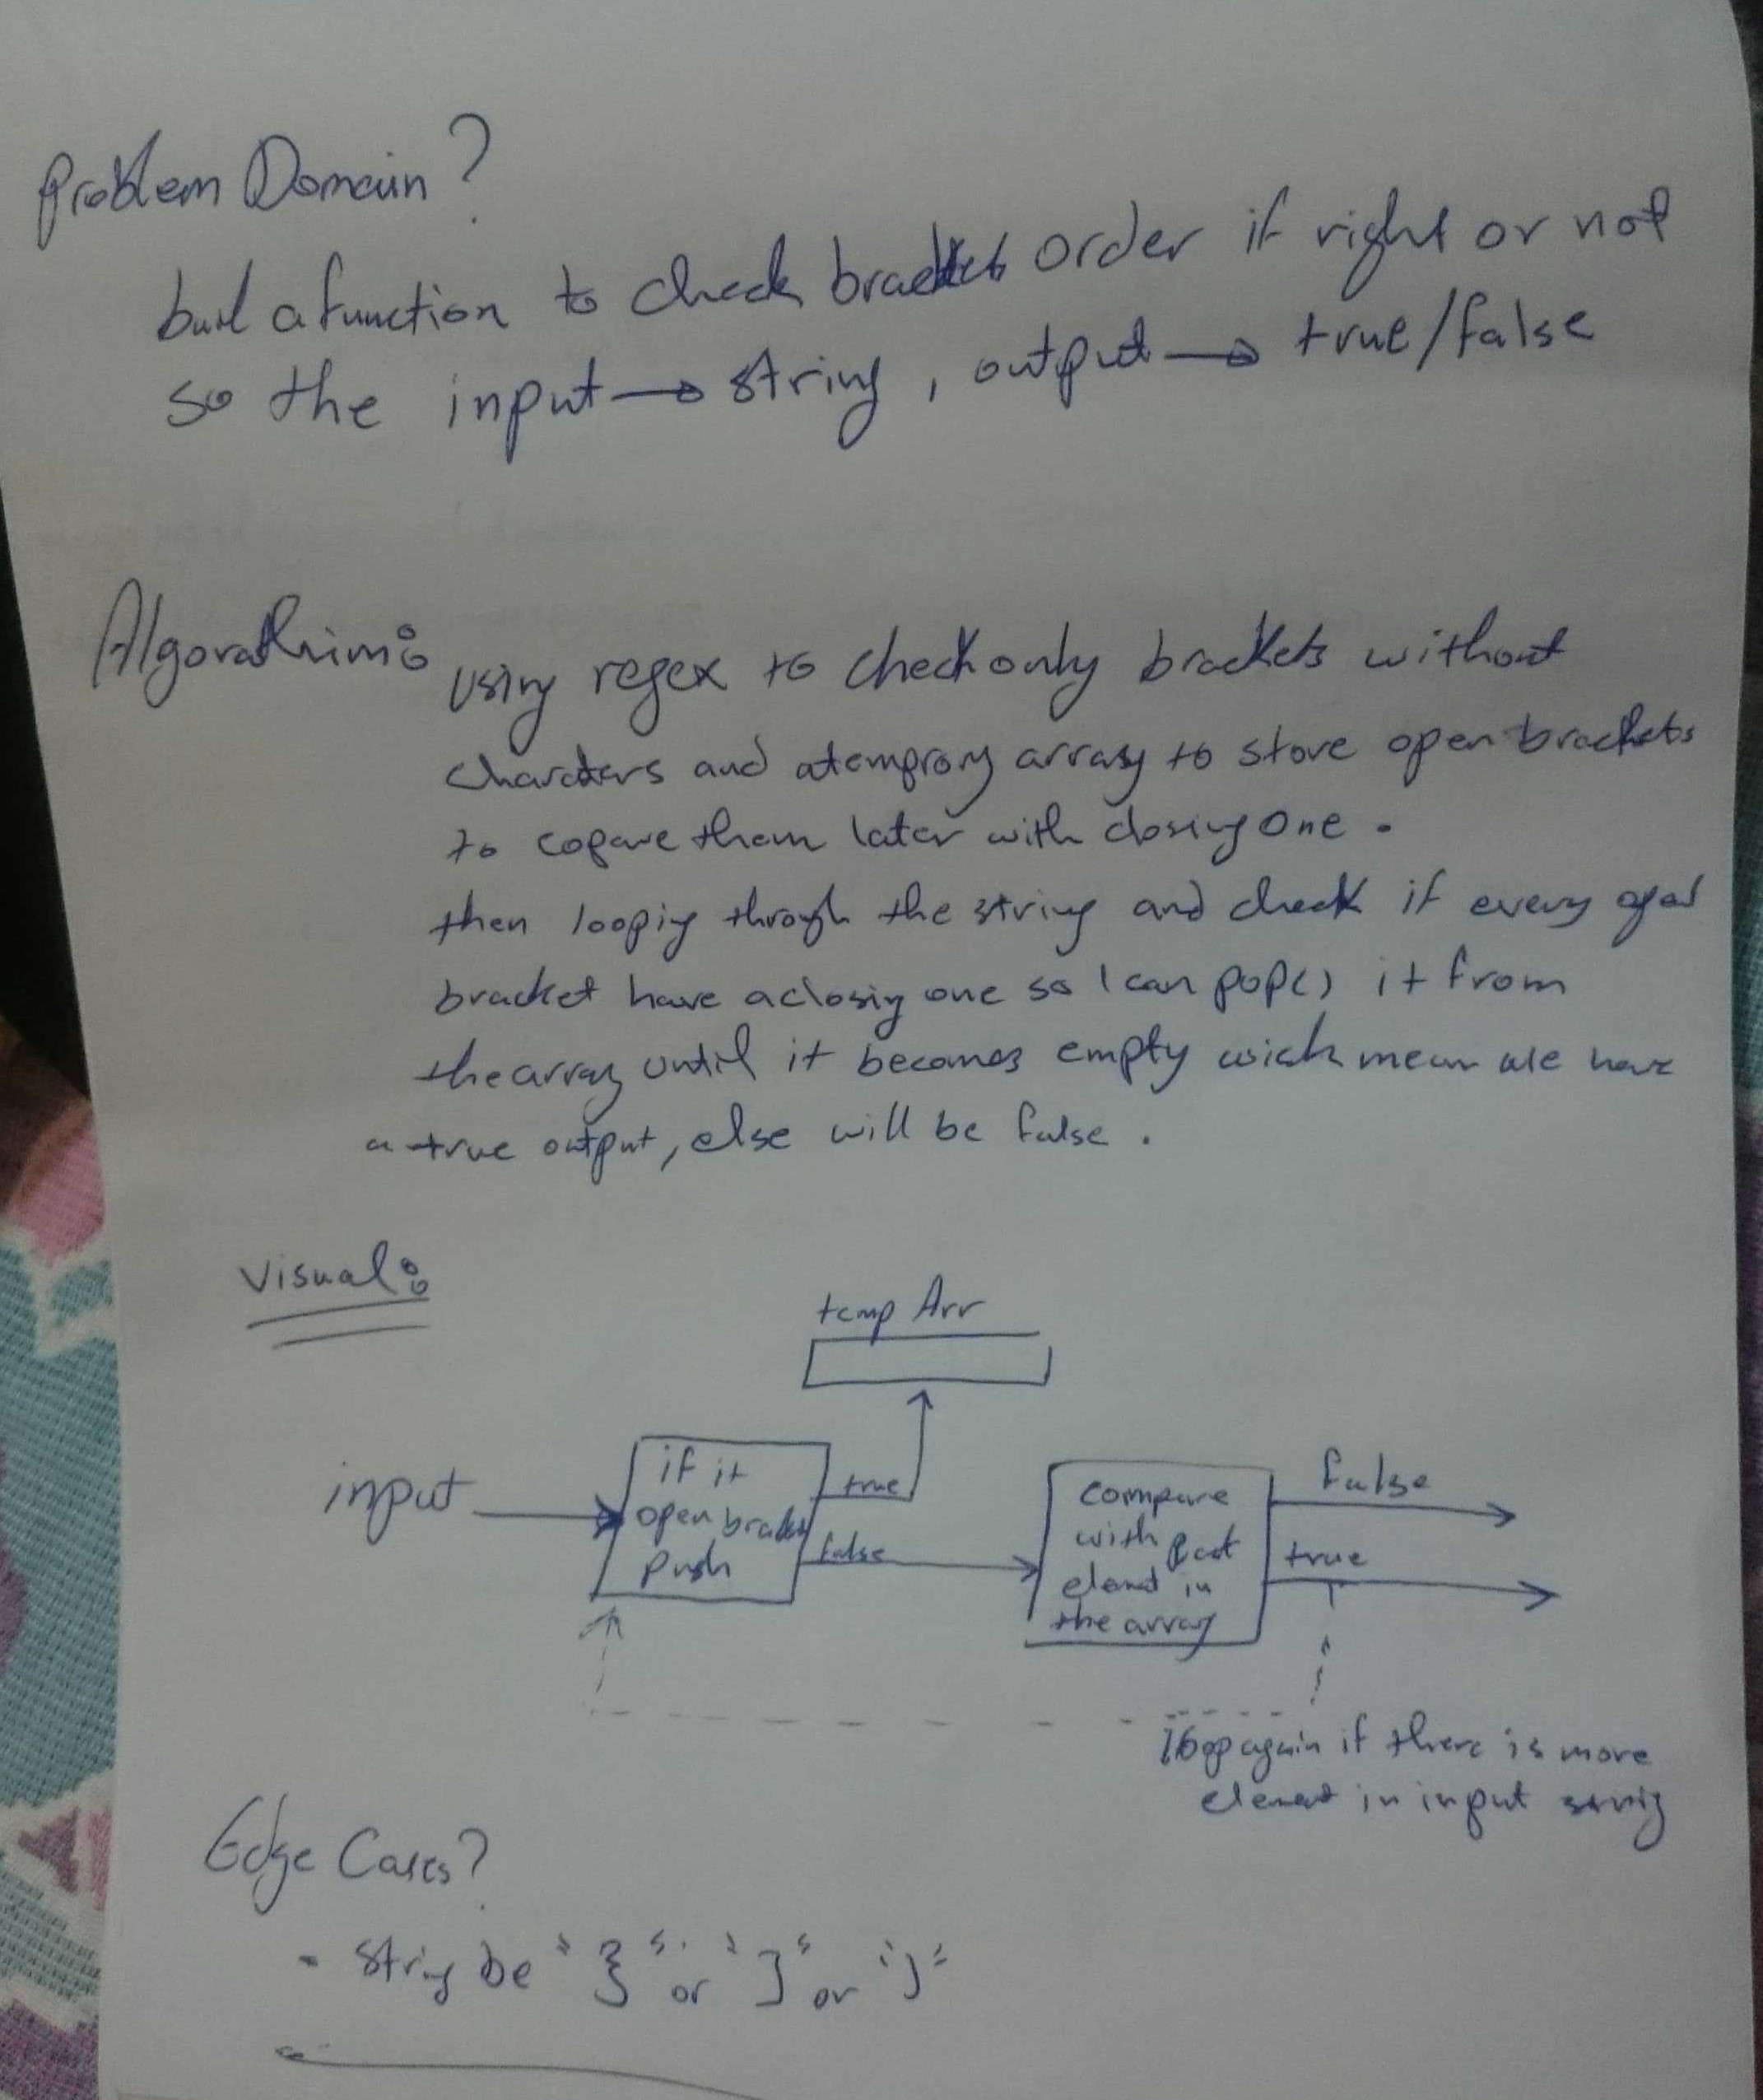 Problem Domain?
buil a function to check brackets order if right or not
so the input → string, output → true/false
Algorathim:
Using regex to check only brackets without
charcters and a temprory array to store open brackets
to copare them later with closing one.
then loopig through the string and check if every
bracket have a closig one so I can pop() it from
the array until it becomes empty wich mean we have
a true output, else will be false.
Visual:
temp Arr
input
if it
open bracket
push
true
false
compare
with
element in
the array
false
true
loop again if there is more
element in input
Edge Cases?
- string be "}" or "]" or ")"